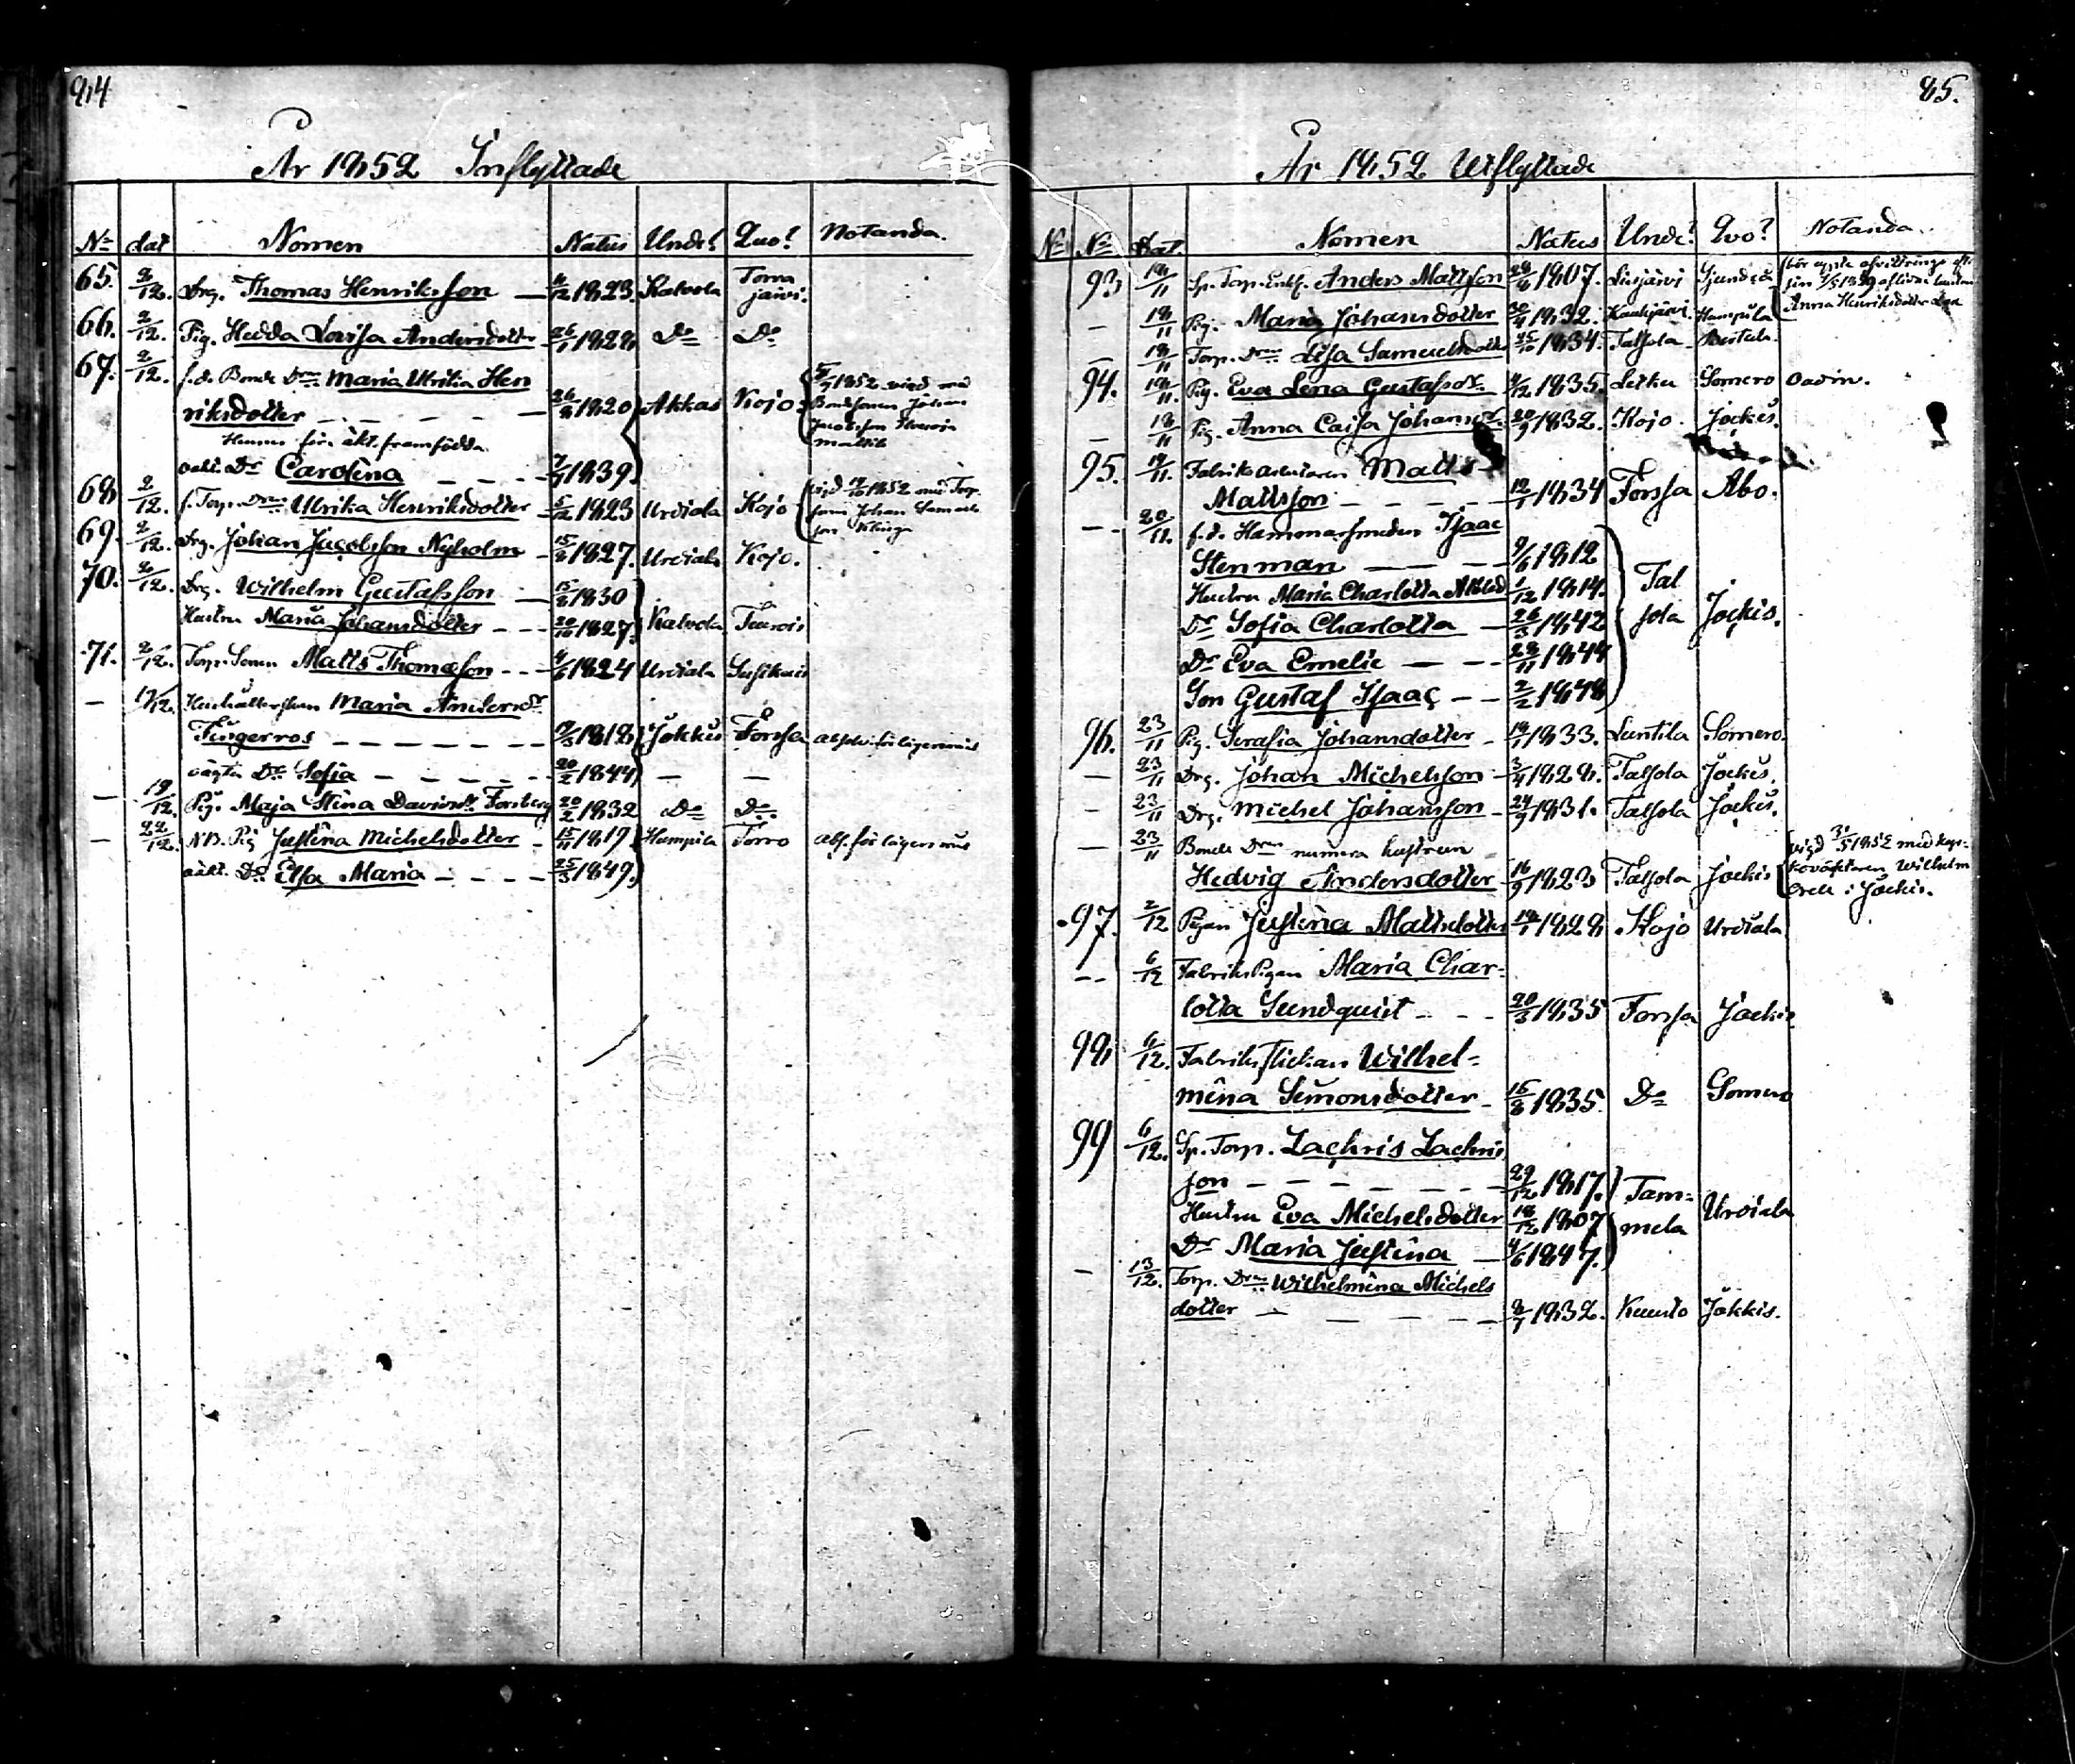 84
År 1852 Inflyttade
No dat Nomen Natus Unde? Quo? Notanda.
65. 2/12. Drg. Thomas Henriksson — 1823. Kalvola Torra järvi.
66. 2/12. Pig. Hedda Lovisa Andersdotter 26/1 1828 Do Do
67. 2/12. f.d. Bonde Dren Maria Ulrika Hen
riksdotter — — — — 26/8 1820 Akkas Kojo. 1852 med
Bondsonen Johan
Jacobsson
Mattila
Hennes före äkt. framfödda
oäkt. Dr Carolina — — — 1839
68 2/12. f. Torp. Dren Ulrika Henriksdotter 5/12 1823 Urdiala Kojo vigd 1852 med Torp.
sonen Johan
69. 2/12. Drg. Johan Jacobsson Nyholm 15/8 1827. Urdiala Kojo.
70. 2/12. Drg. Wilhelm Gustafsson — 15/8 1830
Hustru Maria Johansdotter — — 20/10 1827. Kalvola
71. 2/12. Torp. Sonen Matts Thomæsson — — 1824 Urdiala Susikais
— 17/12. Hushållerskan Maria Andersdr
Fingerroos — — — — — — 1818 Jokkis Forssa absolv. för lägersmål
oägta Dr Sofia — — — — 20/2 1844 — —
— 19/12. Pig. Maja Stina Davidsdr Forsberg 20/2 1832 Do Do
— 22/12. NB. Pig Justina Michelsdotter — 15/11 1817 Humpila Torro abs. för lägersmål
oäkt. Dr Elsa Maria — — — — 25/3 1849.
85.
År 1852 Utflyttade
No No Dat. Nomen Natus Unde? Quo? Notanda.
93 18/11 Sp. Torp. Enkl. Anders Mattsson 1807. Liesjärvi
Anna Henriksdotter
— 18/11 Pig. Maria Johansdotter 1832. Kaukjärvi. Humpila
— 18/11 Torp. Dren Lisa Samuelsdotter 25/10 1834. Talsola
94. 18/11. Pig. Eva Lena Gustafsdr. 1835. Letku Somero
— 18/11 Pig. Anna Caisa Johansdr. 20/9 1832. Kojo. Jockis.
95. 19/11. Fabriksarbetaren Matts
Mattsson — — — — 1834 Forssa Åbo.
— 20/11. f.d. Hammarsmeden Isaac
Stenman — — — 9/6 1812
Hustru Maria Charlotta 1/12 1814.
Dr Sofia Charlotta — 26/3 1842 Tal
sola Jockis.
Dr Eva Emelie — — 28/11 1844
Son Gustaf Isaac — — 2/2 1848
96. 23/11 Pig. Serafia Johansdotter — 1833. Luntila Somero.
— 23/11 Drg. Johan Michelsson — 3/4 1828. Talsola Jockis.
— 23/11 Drg. Michel Johansson — 24/9 1831. Talsola Jockis.
— 23/11 Bonde Dren numera hustrun
Hedvig Andersdotter 16/9 1823 Talsola Jockis vigd 31/5 1852 med
Wilhelm
i Jockis.
97. 2/12 Pigan Justina Mattsdotter 1828 Kojo Urdiala
— 6/12 Fabriks Pigan Maria Char-
lotta Sundquist — — — 20/3 1835 Forssa Jockis
98 6/12. Fabriks flickan Wilhel-
mina Simonsdotter — 15/8 1835. Do Somero
99 6/12. Sp. Torp. Zachris Zachris
son — — — — — — 22/12 1817.
Hustru Eva Michelsdotter 18/12 1807 Tam-
mela Urdiala
Dr Maria Justina — 4/6 1847.
— 13/12. Torp. Dren Wilhelmina Michels
dotter — — — — 1832. Kuusto Jokkis.